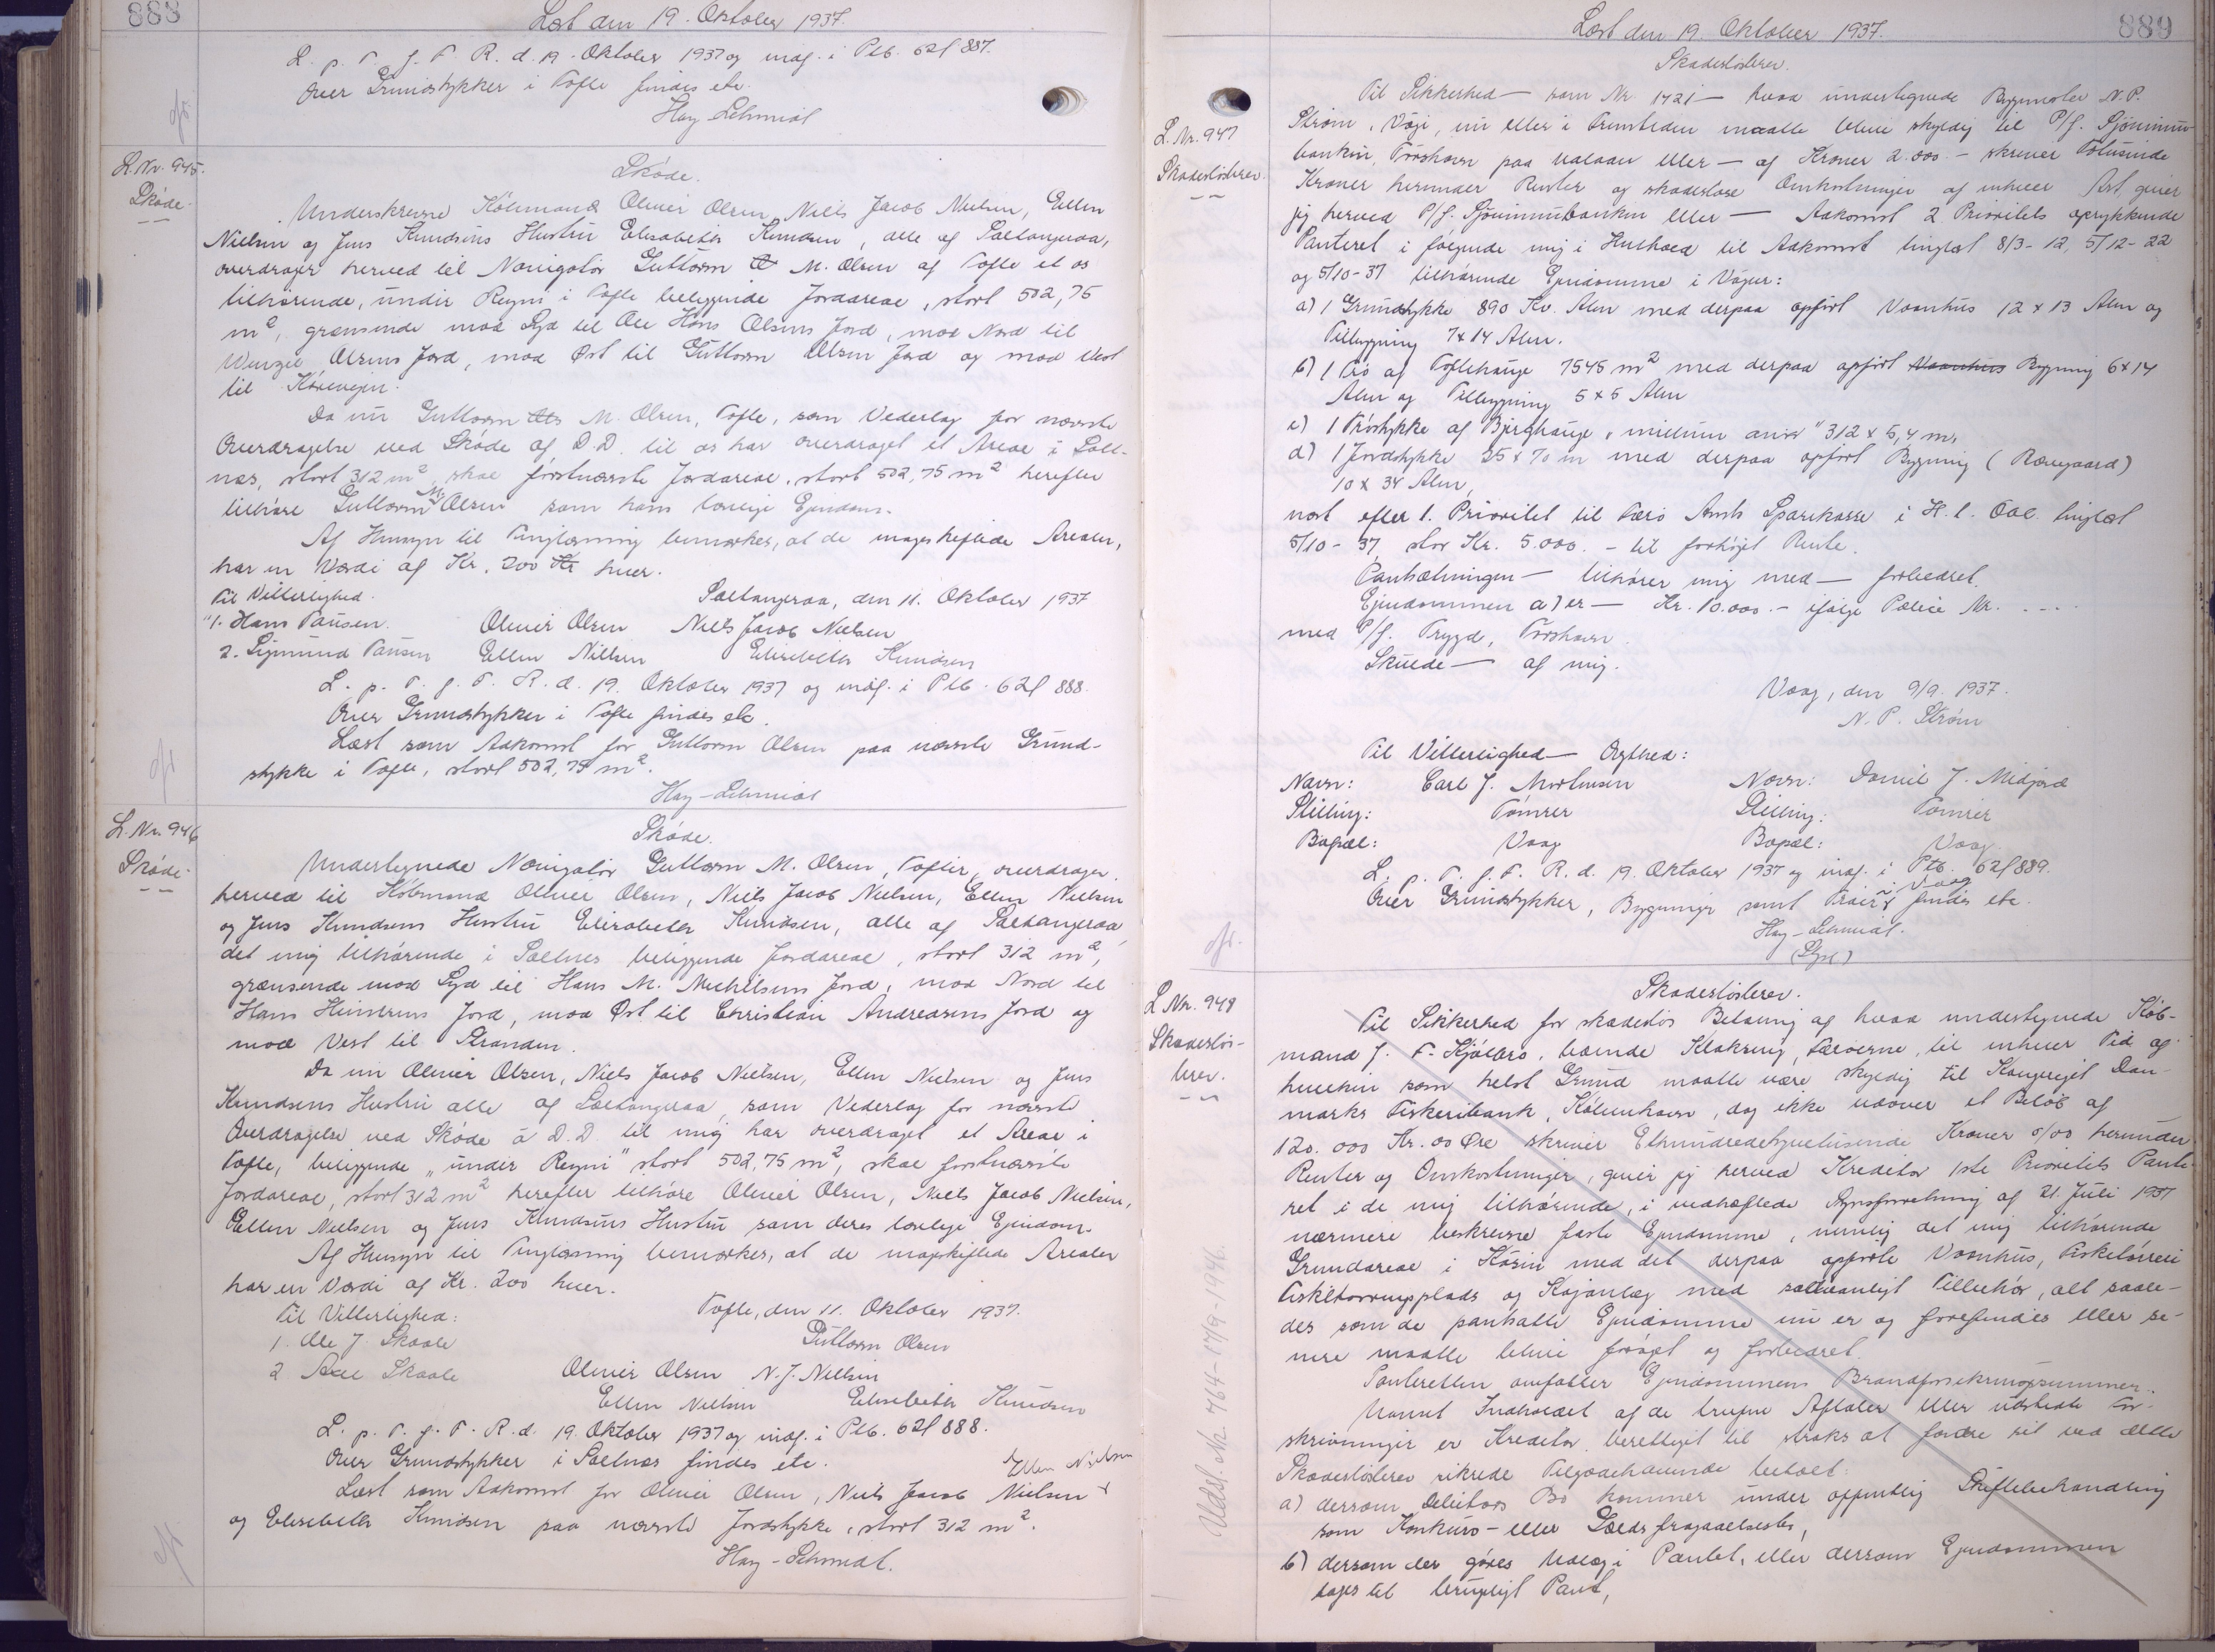 888
Læst den 19. Oktober 1937.
L. p. T. f. F. R. d. 19. Oktober 1937 og indf. i Ptb. 62 f 887.
Over Grundstykker i Tofte findes etc.
Hay-Schmidt
L. Nr. 945.
Skøde.
Skøde.
Underskrevne Købmand Oliver Olsen, Niels Jacob Nielsen, Ellen
Nielsen og Jens Knudsens Hustru Elisabeth Knudsen, alle af Saltangraa,
overdrager herved til Navigatør Guttorm M. Olsen af Tofte et os
tilhørende, undir Reyni i Tofte beliggende Jordareal, stort 502,75
m², grænsende mod Syd til Ole Hans Olsens Jord, mod Nord til
Wenzil Olsens Jord, mod Øst til Guttorm Olsen Jord og mod Vest
til Kørevejen.
Da nu Guttorm M. Olsen, Tofte, som Vederlag for nævnte
Overdragelse ved Skøde af D.D. til os har overdraget et Areal i Salt-
nes, stort 312 m², skal førstnævnte Jordareal, stort 502,75 m² herefter
tilhøre Guttorm M. Olsen som hans lovlige Ejendom.
Af Hensyn til Tinglæsning bemærkes, at de mageskiftede Arealer,
har en Værdi af Kr. 200 Kr hver.
Til Vitterlighed.
Saltangraa, den 11. Oktober 1937
"1. Hans Pausen.
Oliver Olsen Niels Jacob Nielsen
2. Sigmund Pausen
Ellen Nielsen Elisabeth Knudsen
L. p. T. f. F. R. d. 19. Oktober 1937 og indf. i Ptb. 62 f 888.
Over Grundstykker i Tofte findes etc.
Læst som Adkomst for Guttorm Olsen paa nævnte Grund-
stykke i Tofte, stort 502,75 m².
Hay-Schmidt
L. Nr. 946
Skøde.
Skøde.
Undertegnede Navigatør Guttorm M. Olsen, Toftir, overdrager
herved til Købmand Oliver Olsen, Niels Jacob Nielsen, Ellen Nielsen
og Jens Knudsens Hustru Elisabeth Knudsen, alle af Saltangraa,
det mig tilhørende i Saltnes beliggende Jordareal, stort 312 m²,
grænsende mod Syd til Hans M. Michelsens Jord, mod Nord til
Hans Hendrens Jord, mod Øst til Christian Andreasens Jord og
mod Vest til Stranden.
Da nu Oliver Olsen, Niels Jacob Nielsen, Ellen Nielsen og Jens
Knudsens Hustru alle af Saltangraa, som Vederlag for nævnte
Overdragelse ved Skøde á D.D. til mig har overdraget et Areal i
Tofte, beliggende "undir Reyni" stort 502,75 m², skal førstnævnte
Jordareal, stort 312 m² herefter tilhøre Oliver Olsen, Niels Jacob Nielsen,
Ellen Nielsen og Jens Knudsens Hustru som deres lovlige Ejendom.
Af Hensyn til Tinglæsning bemærkes, at de mageskiftede Arealer
har en Værdi af Kr. 200 hver.
Til Vitterlighed:
Tofte, den 11. Oktober 1937.
1. Ole J. Skaale
Guttorm Olsen
2 Axel Skaale
Oliver Olsen N. J. Nielsen
Ellen Nielsen Elisabeth Knudsen
L. p. T. f. F. R. d. 19. Oktober 1937 og indf. i Ptb. 62 f 888.
Over Grundstykker i Saltnes findes etc.
Læst som Adkomst for Oliver Olsen, Niels Jacob Nielsen Ellen Nielsen
og Elisabeth Knudsen paa nævnte Jordstykke, stort 312 m².
Hay-Schmidt.
889
Læst den 19. Oktober 1937.
L. Nr. 947
Skadesløsbrev.
Skadesløsbrev.
Til Sikkerhed — som Nr. 1421 — hvad undertegnede Bygmester N. P.
Strøm, Vági, nu eller i Fremtiden maatte blive skyldig til P/f. Sjóvinnu-
bankin, Tórshavn paa Valuau eller — af Kroner 2.000.- skriver Totusinde
Kroner herunder Renter og skadesløse Omkostninger af enhver Art giver
jeg herved P/f. Sjóvinnubankin eller — Adkomst 2. Prioritets oprykkende
Panteret i følgende mig i Henhold til Adkomst tinglæst 8/3-12, 5/12-22
og 5/10-37 tilhørende Ejendomme i Vágur:
a) 1 Grundstykke 890 Kv. Alen med derpaa opført Vaanhus 12 x 13 Alen og
Tilbygning 7x14 Alen.
b) 1 Trø af Toftehauge 1545 m² med derpaa opført Vaanhus Bygning 6x14
Alen og Tilbygning 5x5 Alen
c) 1 Trøstykke af Bjerghauge, "millum áirnar" 312 x 5,4 m.
d) 1 Jordstykke 25 x 70 m med derpaa opført Bygning (Rævegaard)
10 x 34 Alen,
næst efter 1. Prioritet til Færø Amts Sparekasse i H. t. Obl. tinglæst
5/10-37, stor Kr. 5.000.- til forhøjet Rente.
Pantsætningen — tilhører mig med — forbedret.
Ejendommen a) er — Kr. 10.000.- ifølge Police Nr. ....
med P/f. Trygd, Tórshavn.
Skulde — af mig.
Vaag, den 9/9. 1937.
N. P. Strøm
Til Vitterlighed — Ægthed:
Navn: Carl J. Mortensen Navn: Daniel J. Midjord
Stilling: Tømrer Stilling: Tømrer
Bopæl: Vaag Bopæl: Vaag.
L. p. T. f. F. R. d. 19. Oktober 1937 og indf. i Ptb. 62 f 889.
Over Grundstykker, Bygninger samt Trøer i Vaag findes etc.
Hay-Schmidt.
L Nr. 948
Skadesløs-
brev.
Skadesløsbrev.
Til Sikkerhed for skadesløs Betaling af hvad undertegnede Køb-
mand J. F. Kjølbro, boende Klaksvig, Færøerne, til enhver Tid af
hvilken som helst Grund maatte være skyldig til Kongeriget Dan-
marks Fiskeribank, København, dog ikke udover et Beløb af
120.000 Kr. 00 Øre skriver Ethundredetyvetusinde Kroner 0/00 herunder
Renter og Omkostninger, giver jeg herved Kreditor 1ste Prioritets Pante-
ret i de mig tilhørende, i vedhæftede Synsforretning af 21. Juli 1937
nærmere beskrevne faste Ejendomme, nemlig det mig tilhørende
Grundareal i Kósini med det derpaa opførte Vaanhus, Fisketørreri
Fisketørringsplads og Kajanlæg med sædvanligt Tilbehør, alt saale-
des som de pantsatte Ejendomme nu er og forefindes eller se-
nere maatte blive forøget og forbedret.
Panteretten omfatter Ejendommens Brandforsikringssummer.
Uanset Indholdet af de trufne Aftaler eller udstedte For-
skrivninger er Kreditor berettiget til straks at fordre sit ved dette
Skadesløsbrev sikrede Tilgodehavende betalt:
a) dersom Debitors Bo kommer under offentlig Skiftebehandling
som Konkurs- eller Gælds fragaaelsesbo,
b) dersom der gøres Udlæg i Pantet, eller dersom Ejendommen
tages til brugeligt Pant,
Udsl. Nr. 764-17/9-1946.